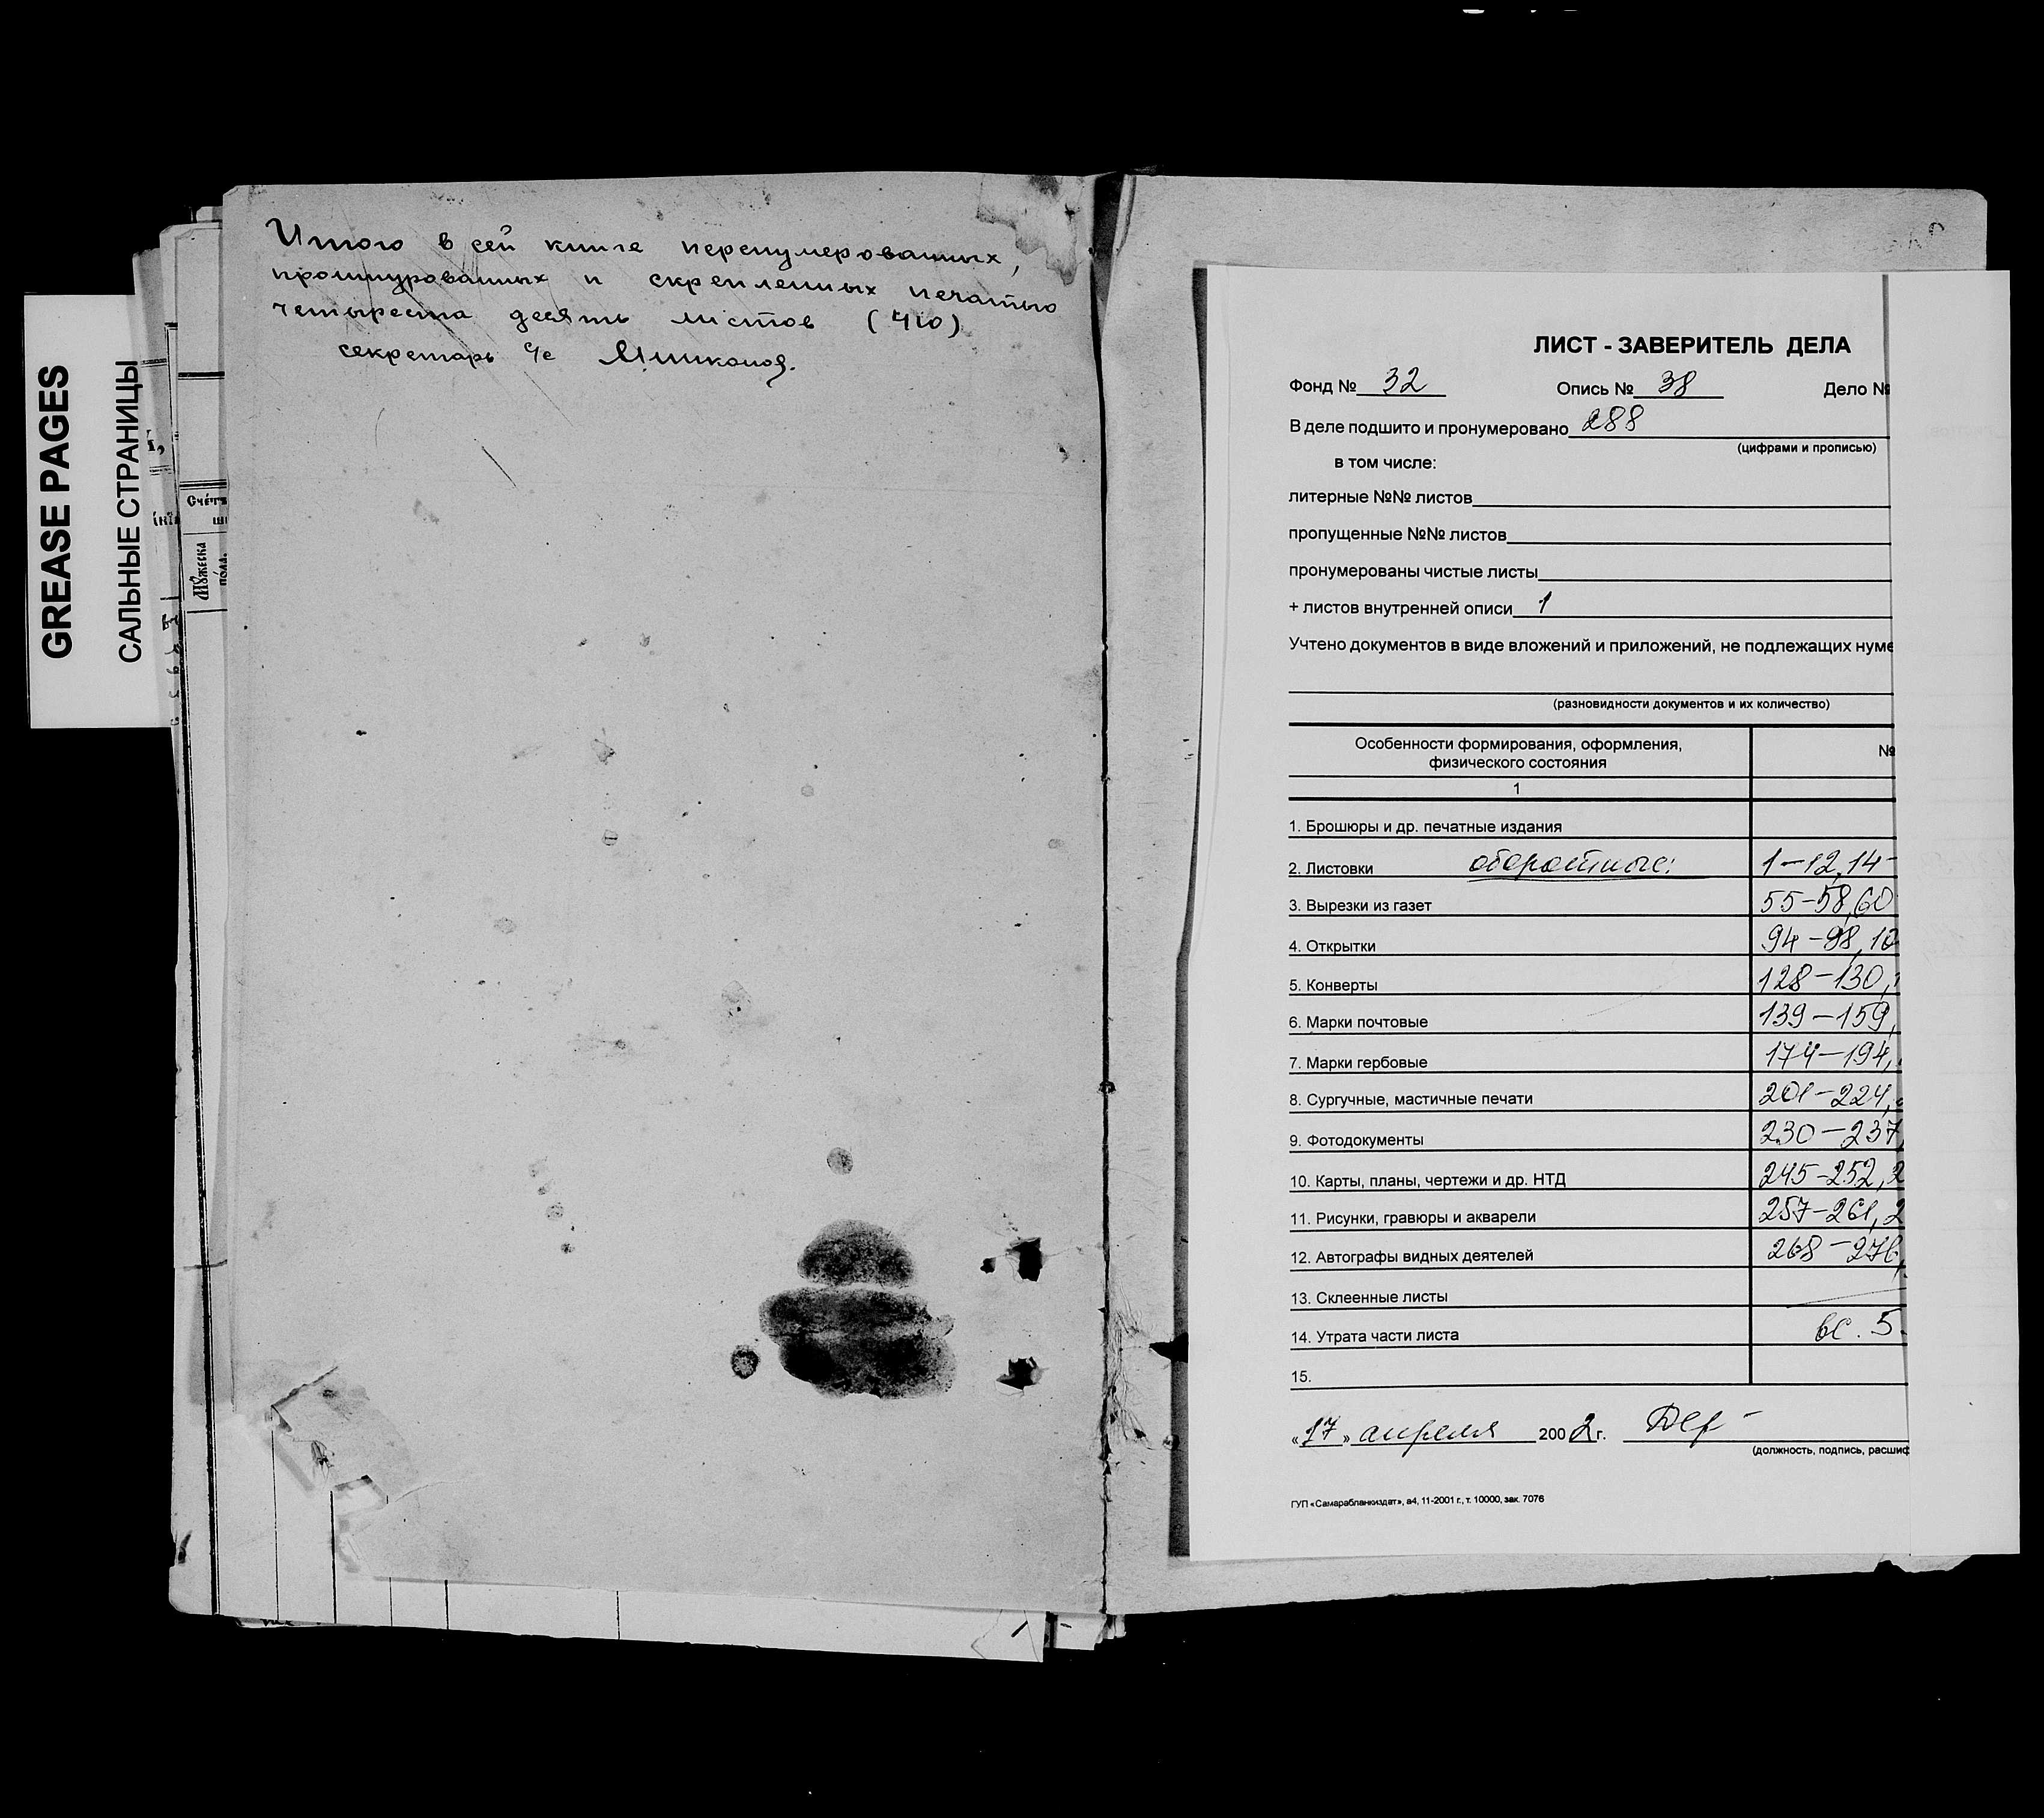 GREASE PAGES
САЛЬНЫЕ СТРАНИЦЫ
Счéтъ
Мꙋжеска
пóла.
Итого в сей книге перенумерованных,
прошнурованных и скрепленных печатью
четыреста десять листов (410)
секретарь с/с
ЛИСТ - ЗАВЕРИТЕЛЬ ДЕЛА
Фонд № 32 Опись № 38 Дело №
В деле подшито и пронумеровано 288
(цифрами и прописью)
в том числе:
литерные №№ листов
пропущенные №№ листов
пронумерованы чистые листы
+ листов внутренней описи 1
Учтено документов в виде вложений и приложений, не подлежащих нуме
(разновидности документов и их количество)
Особенности формирования, оформления, №
физического состояния
1
1. Брошюры и др. печатные издания
2. Листовки оборотные: 1-12,14-
3. Вырезки из газет 55-58,60
4. Открытки 94-98,10
5. Конверты 128-130,
6. Марки почтовые 139-159,
7. Марки гербовые 174-194,
8. Сургучные, мастичные печати 201-224,
9. Фотодокументы 230-237
10. Карты, планы, чертежи и др. НТД 245-252,2
11. Рисунки, гравюры и акварели 257-261,2
12. Автографы видных деятелей 268-276,
13. Склеенные листы
14. Утрата части листа вс. 5
15.
«17» апреля 2002г.
(должность, подпись, расшиф
ГУП «Самарабланкиздат», а4, 11-2001 г., т. 10000, зак. 7076